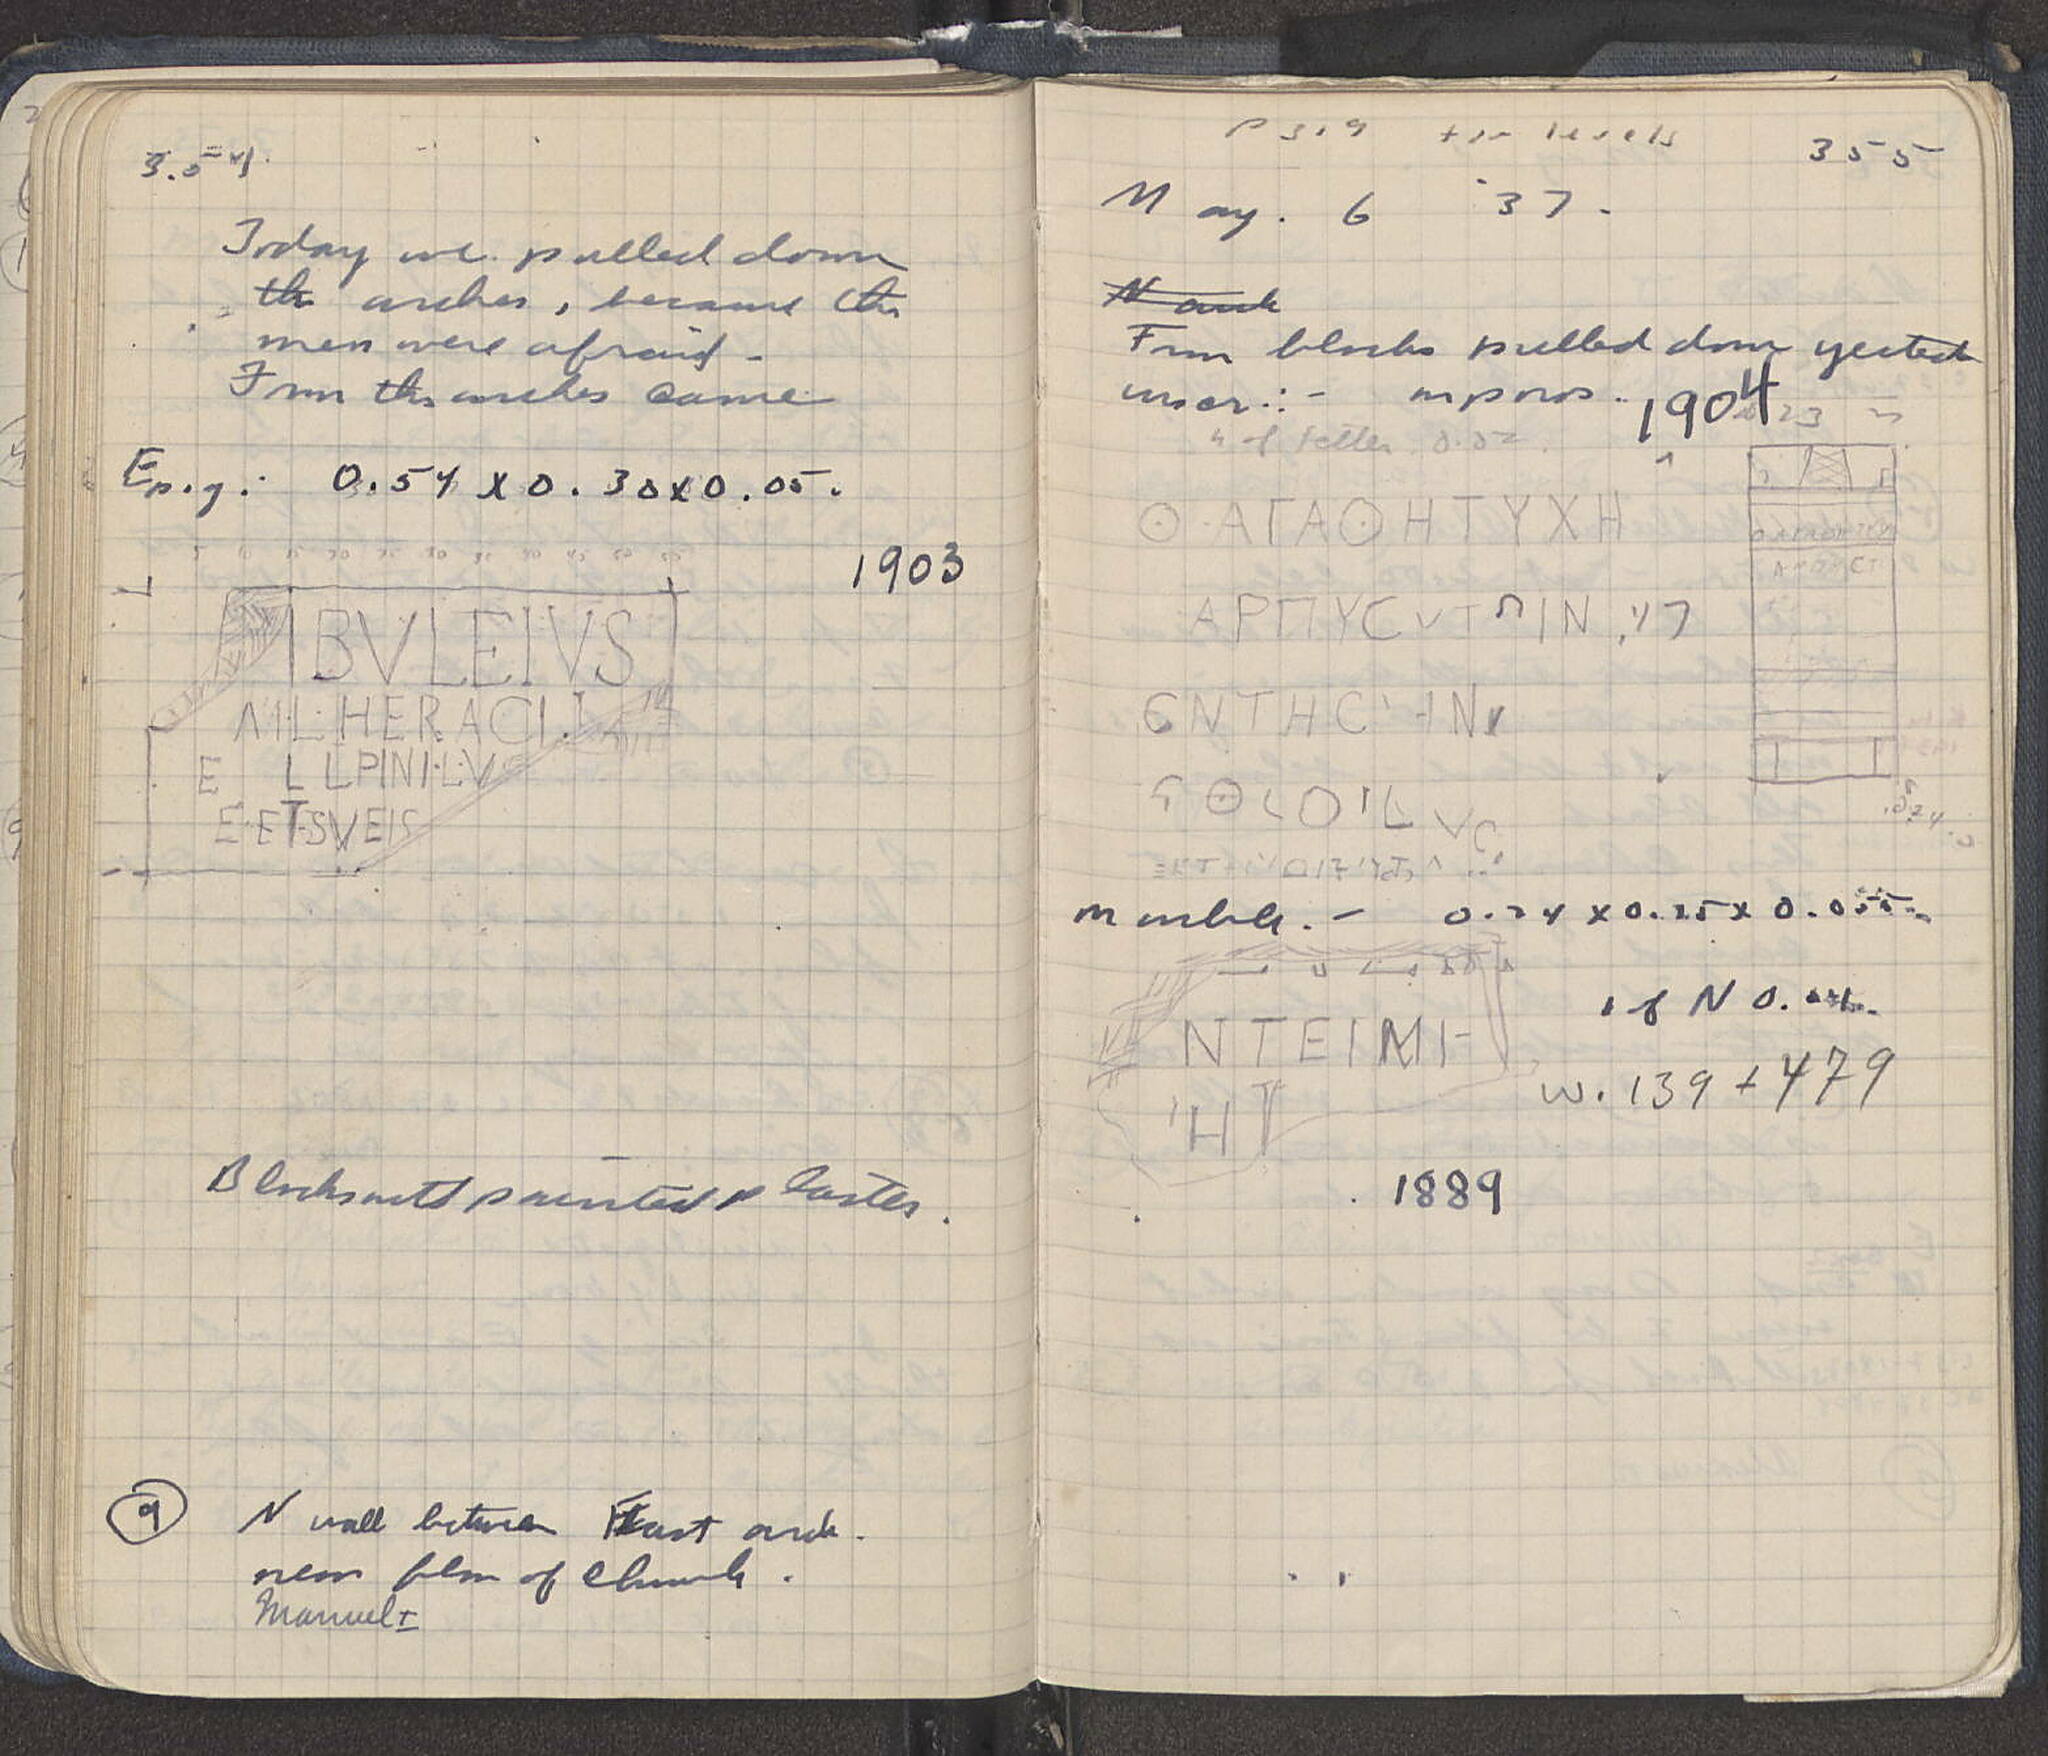 354
Today we pulled down
the arches, because the
men were afraid -
From the arches came
Epig: 0.54 x 0.30 x 0.05.
5 10 15 20 25 30 35 40 45 50 55
1903
IBVLEIVS
HERACLI
E LLPINI·LV
E·ET·SVEIS
Blocks with painted plaster.
9
N wall between East arch.
near floor of church.
Manuel I
p 319 for levels
355
May. 6 '37.
N arch
From blocks pulled down yesterd
inscr:- in poros.
1904
h of letter 0.02.
Θ·ΑΓΑΘΗΤΥΧΗ
ΑΡΠΥC
ЄΝΤΗC
Marble. - 0.24 x 0.25 x 0.055
ΝΤΕΙΜΗ
ΗΤ
of N 0.04
W. 139 + 479
1889